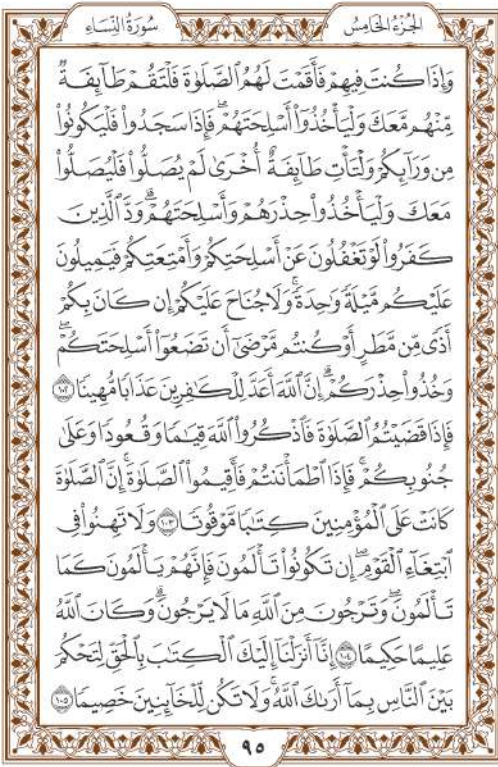 الجُزْءُ الخَامِسُ
سُورَةُ النِّسَاءِ
وَإِذَا كُنتَ فِيهِمْ فَأَقَمْتَ لَهُمُ ٱلصَّلَوٰةَ فَلْتَقُمْ طَآئِفَةٌ
مِّنْهُم مَّعَكَ وَلْيَأْخُذُوٓا۟ أَسْلِحَتَهُمْ ۖ فَإِذَا سَجَدُوا۟ فَلْيَكُونُوا۟
مِن وَرَآئِكُمْ وَلْتَأْتِ طَآئِفَةٌ أُخْرَىٰ لَمْ يُصَلُّوا۟ فَلْيُصَلُّوا۟
مَعَكَ وَلْيَأْخُذُوا۟ حِذْرَهُمْ وَأَسْلِحَتَهُمْ ۗ وَدَّ ٱلَّذِينَ
كَفَرُوا۟ لَوْ تَغْفُلُونَ عَنْ أَسْلِحَتِكُمْ وَأَمْتِعَتِكُمْ فَيَمِيلُونَ
عَلَيْكُم مَّيْلَةً وَٰحِدَةً ۚ وَلَا جُنَاحَ عَلَيْكُمْ إِن كَانَ بِكُمْ
أَذًى مِّن مَّطَرٍ أَوْ كُنتُم مَّرْضَىٰٓ أَن تَضَعُوٓا۟ أَسْلِحَتَكُمْ ۖ
وَخُذُوا۟ حِذْرَكُمْ ۗ إِنَّ ٱللَّهَ أَعَدَّ لِلْكَٰفِرِينَ عَذَابًا مُّهِينًا ١٠٢
فَإِذَا قَضَيْتُمُ ٱلصَّلَوٰةَ فَٱذْكُرُوا۟ ٱللَّهَ قِيَٰمًا وَقُعُودًا وَعَلَىٰ
جُنُوبِكُمْ ۚ فَإِذَا ٱطْمَأْنَنتُمْ فَأَقِيمُوا۟ ٱلصَّلَوٰةَ ۚ إِنَّ ٱلصَّلَوٰةَ
كَانَتْ عَلَى ٱلْمُؤْمِنِينَ كِتَٰبًا مَّوْقُوتًا ١٠٣ وَلَا تَهِنُوا۟ فِى
ٱبْتِغَآءِ ٱلْقَوْمِ ۖ إِن تَكُونُوا۟ تَأْلَمُونَ فَإِنَّهُمْ يَأْلَمُونَ كَمَا
تَأْلَمُونَ ۖ وَتَرْجُونَ مِنَ ٱللَّهِ مَا لَا يَرْجُونَ ۗ وَكَانَ ٱللَّهُ
عَلِيمًا حَكِيمًا ١٠٤ إِنَّآ أَنزَلْنَآ إِلَيْكَ ٱلْكِتَٰبَ بِٱلْحَقِّ لِتَحْكُمَ
بَيْنَ ٱلنَّاسِ بِمَآ أَرَىٰكَ ٱللَّهُ ۚ وَلَا تَكُن لِّلْخَآئِنِينَ خَصِيمًا ١٠٥
٩٥